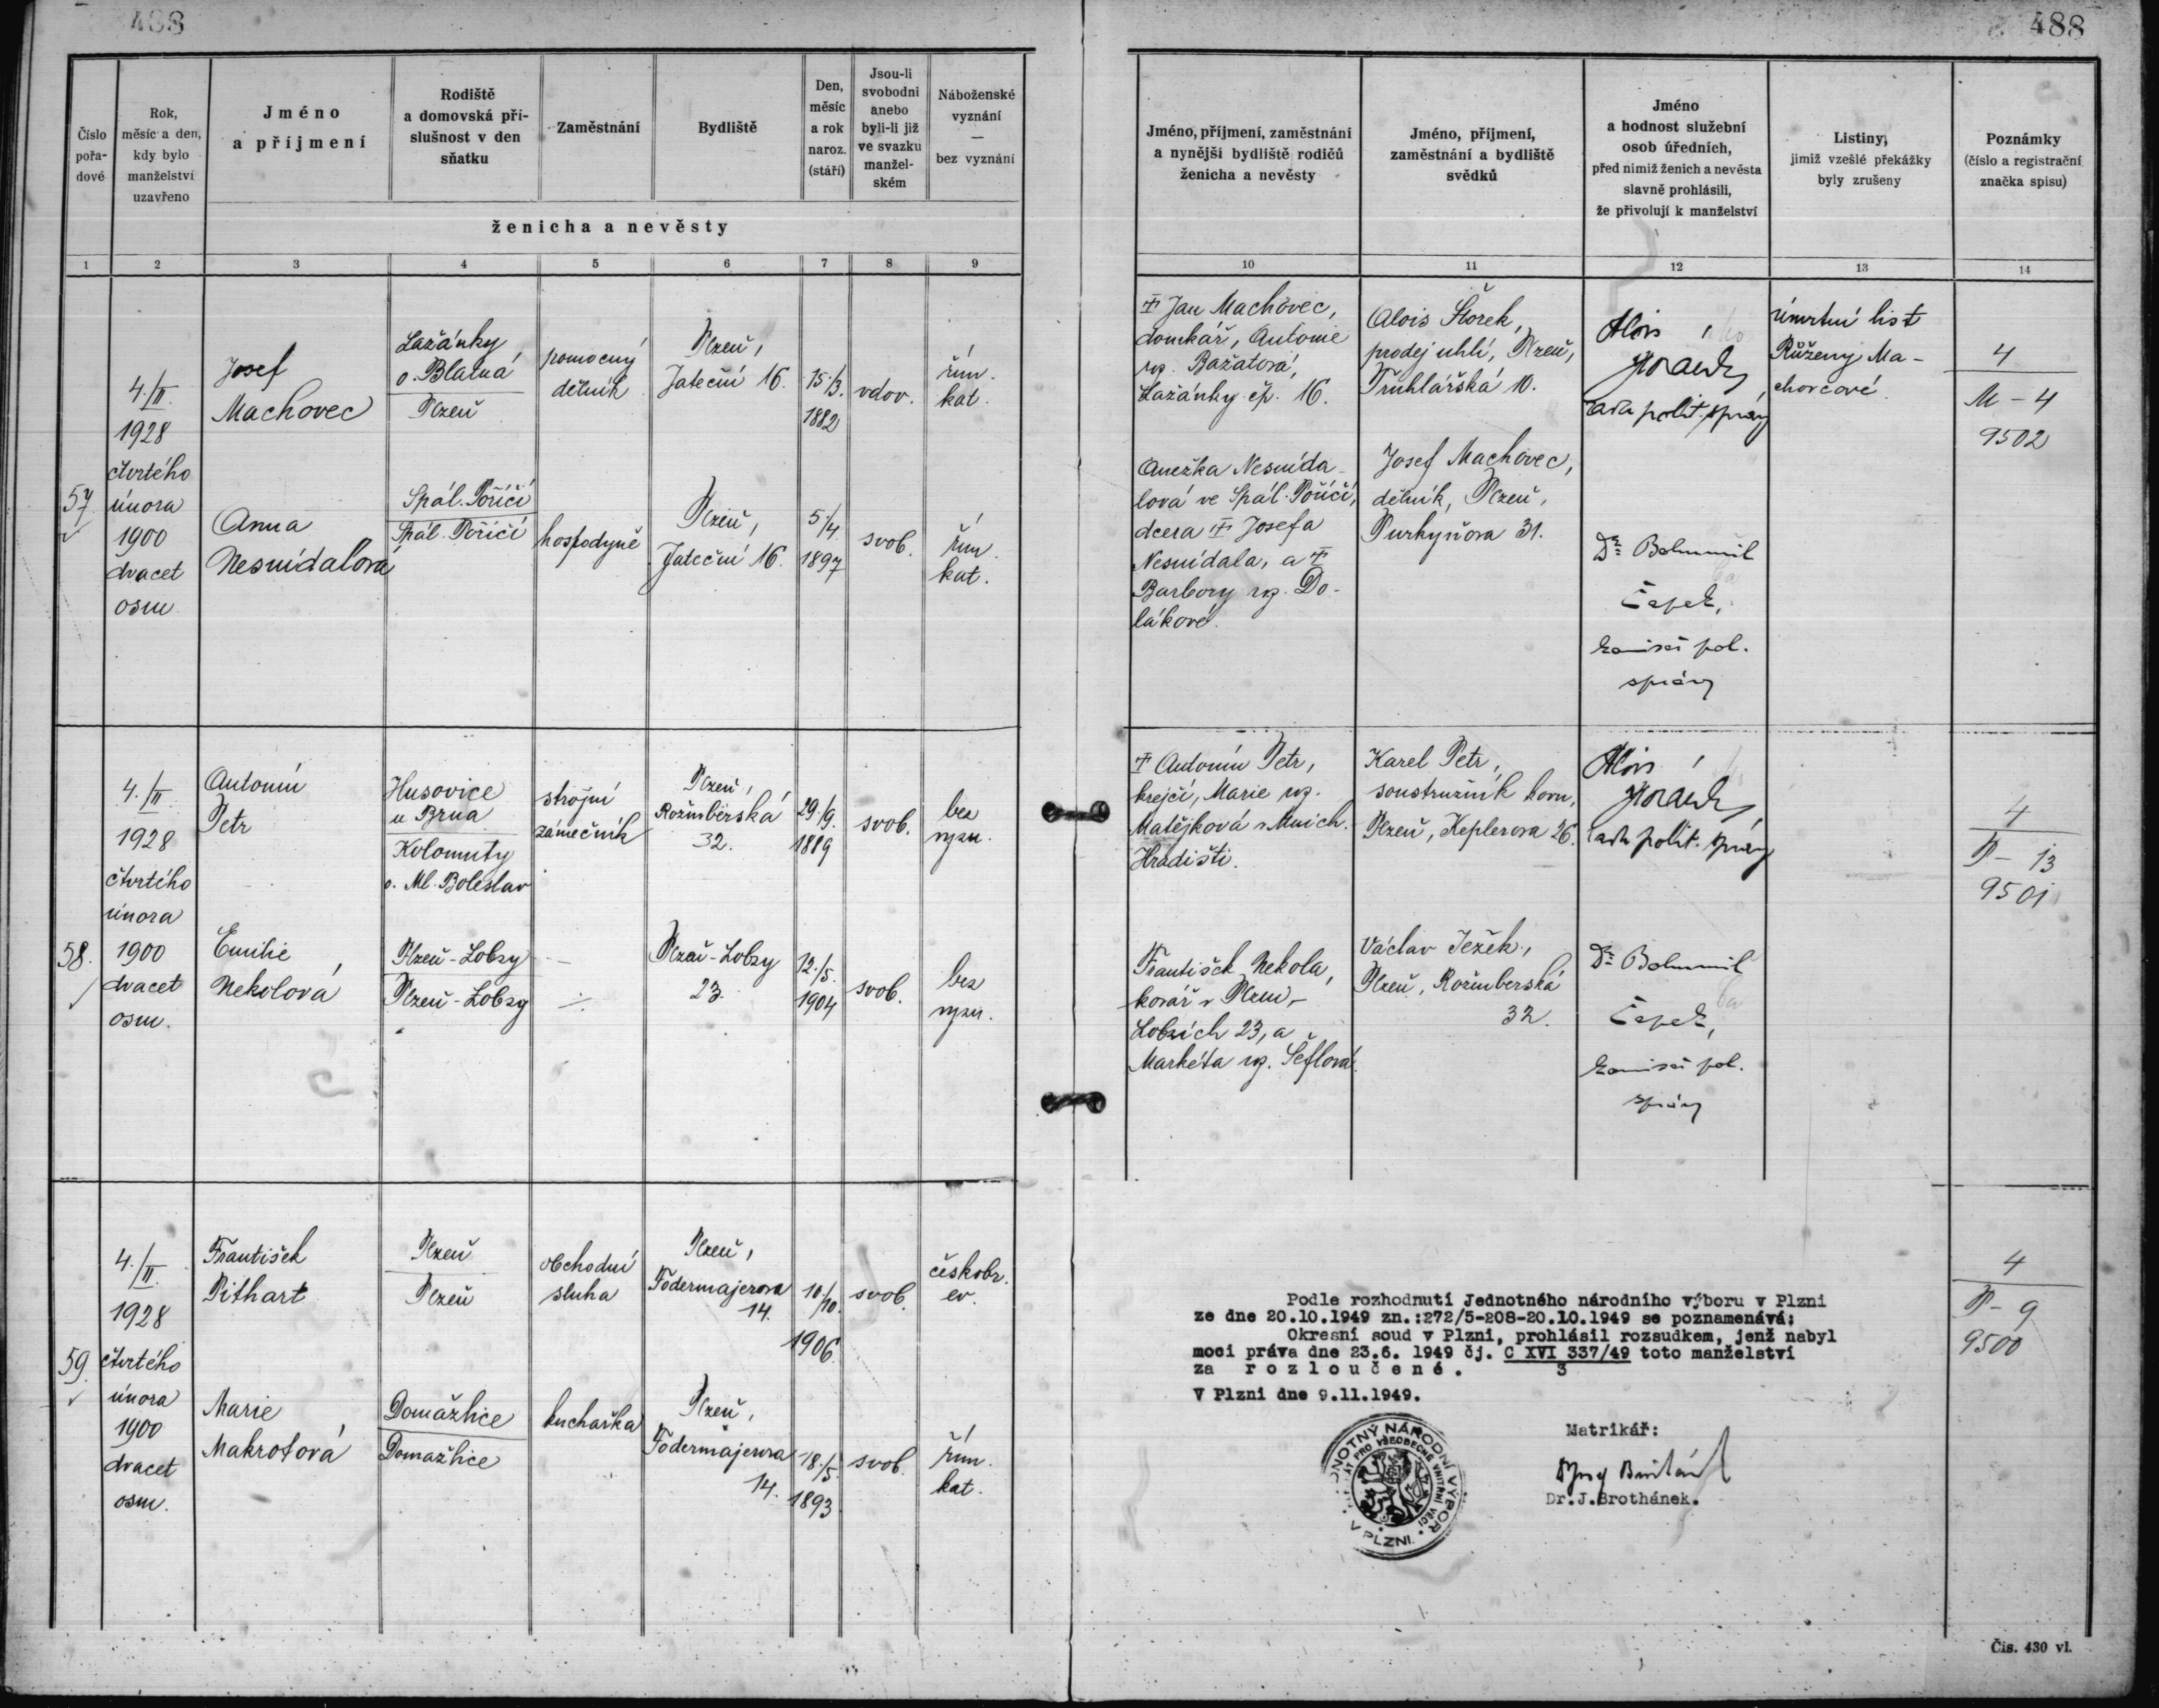 488
488
Číslo
pořa-
dové
Rok,
měsíc a den,
kdy bylo
manželství
uzavřeno
Jméno
a příjmení
Rodiště
a domovská pří-
slušnost v den
sňatku
Zaměstnání
Bydliště
Den,
měsíc
a rok
naroz.
(stáří)
Jsou-li
svobodni
anebo
byli-li již
ve svazku
manžel-
ském
Náboženské
vyznání
—
bez vyznání
ženicha a nevěsty
1 2 3 4 5 6 7 8 9
Jméno, příjmení, zaměstnání
a nynější bydliště rodičů
ženicha a nevěsty
Jméno, příjmení,
zaměstnání a bydliště
svědků
Jméno
a hodnost služební
osob úředních,
před nimiž ženich a nevěsta
slavně prohlásili,
že přivolují k manželství
Listiny,
jimiž vzešlé překážky
byly zrušeny
Poznámky
(číslo a registrační
značka spisu)
10 11 12 13 14
57.
4./II.
1928
čtvrtého
února
1900
dvacet
osm
Josef
Machovec
Lažánky
o. Blatná
Plzeň
pomocný
dělník
Plzeň,
Jateční 16.
15./3.
1882
vdov.
řím.
kat.
Anna
Nesnídalová
Spál. Poříčí
Spál. Poříčí
hospodyně
Plzeň,
Jateční 16.
5./4.
1897
svob.
řím.
kat.
Jan Machovec,
domkář, Antonie
roz. Bažatová,
Lažánky čp. 16.
Anežka Nesnída-
lová ve Spál. Poříčí,
dcera Josefa
Nesnídala, a
Barbory roz. Do-
lákové.
Alois Štorek,
prodej uhlí, Plzeň,
Truhlářská 10.
Josef Machovec,
dělník, Plzeň,
Purkyňova 31.
Alois
rada polit. správy
Dr. Bohumil
Čepek,
komisař pol.
správy
úmrtní list
Růženy Ma-
chovcové.
4
M - 4
9502
58.
4./II.
1928
čtvrtého
února
1900
dvacet
osm.
Antonín
Petr
Husovice
u Brna
Kolomuty
o. Ml. Boleslav
strojní
zámečník
Plzeň,
Rožmberská
32.
29./9.
1889
svob.
bez
vyzn.
Emilie
Nekolová
Plzeň-Lobzy
Plzeň-Lobzy
Plzeň-Lobzy
23.
12./5.
1904
svob.
bez
vyzn.
Antonín Petr,
krejčí, Marie roz.
Matějková v Mnich.
Hradišti.
František Nekola,
kovář v Plzni,-
Lobzích 23, a
Markéta roz. Šeflová.
Karel Petr,
soustružník kovu,
Plzeň, Keplerova 26.
Václav Ježek,
Plzeň, Rožmberská
32.
Alois
rada polit. správy
Dr. Bohumil
Čepek,
komisař pol.
správy
4
P - 13
9501
59.
4./II.
1928
čtvrtého
února
1900
dvacet
osm.
František
Pithart
Plzeň
Plzeň
obchodní
sluha
Plzeň,
Födermajerova
14.
10./10.
1906.
svob.
českobr.
ev.
Marie
Makrotová
Domažlice
Domažlice
kuchařka
Plzeň,
Födermajerova
14.
18./5.
1893
svob.
řím.
kat.
4
P - 9
9500
Podle rozhodnutí Jednotného národního výboru v Plzni
ze dne 20.10.1949 zn.:272/5-208-20.10.1949 se poznamenává:
Okresní soud v Plzni, prohlásil rozsudkem, jenž nabyl
moci práva dne 23.6. 1949 čj. C XVI 337/49 toto manželství
za rozloučené. 3
V Plzni dne 9.11.1949.
Matrikář:
Dr.J.Brothánek.
JEDNOTNÝ NÁRODNÍ VÝBOR
V PLZNI
PRO VŠEOBECNÉ VNITŘNÍ VĚCI
Čís. 430 vl.